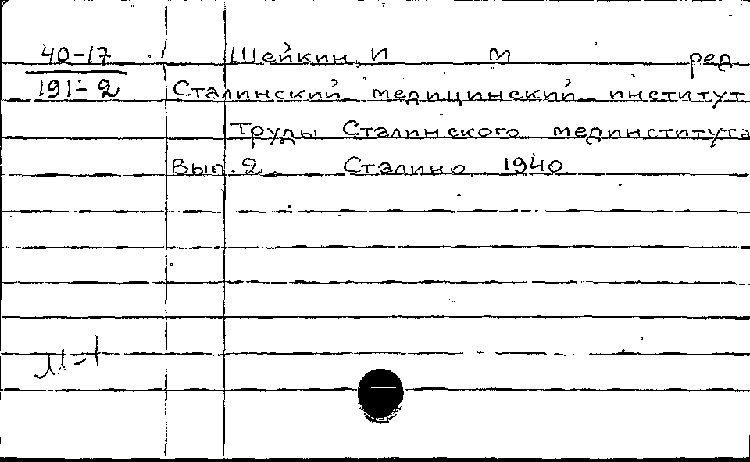 40-17 Шейкин, И М ред.
191-2 Сталинский медицинский институт
Труды Сталинского мединститута
Вып. 2 Сталино 1940